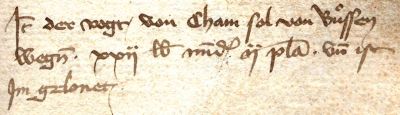 It der vogt von Cham sol von Bůssen
wegn . xxij lb ij plꝫ . vn̄ ist
Im gelonet